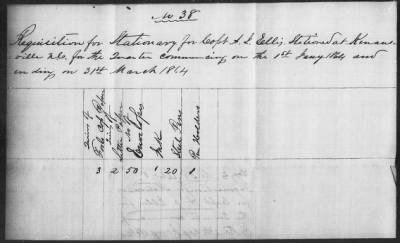 No 38
Requisition for Stationary for Capt A. J. Ellis Stationed at Kenans-
ville N.C. for the Quarter commencing on the 1st Jany 1864 and
ending on 31st March 1864
Quires of
Fools Cap Paper
Letter Paper
No of
Envelops
Ink
Steel Pens
Pen Holders
3 2 50 1 20 1